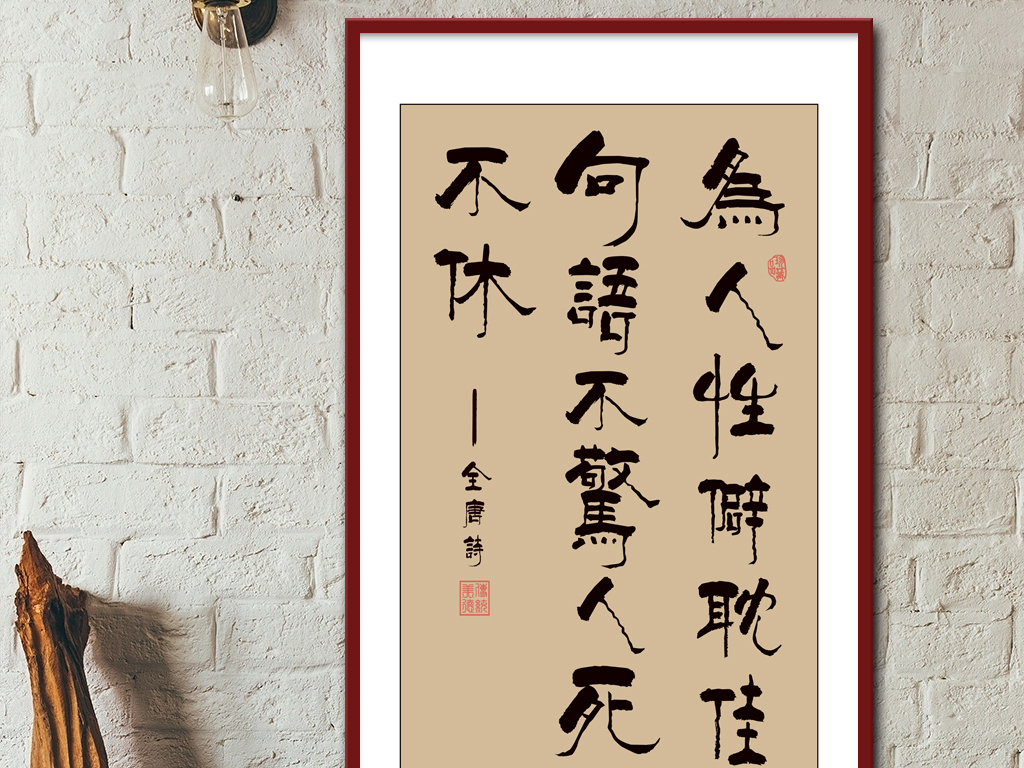 為人性僻耽佳
句語不驚人死
不休
—全唐詩
傳統
美德